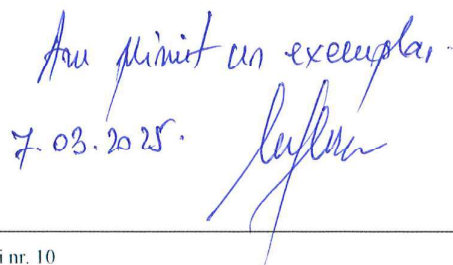 Am primit un exemplar.
7.03.2025.
i nr. 10